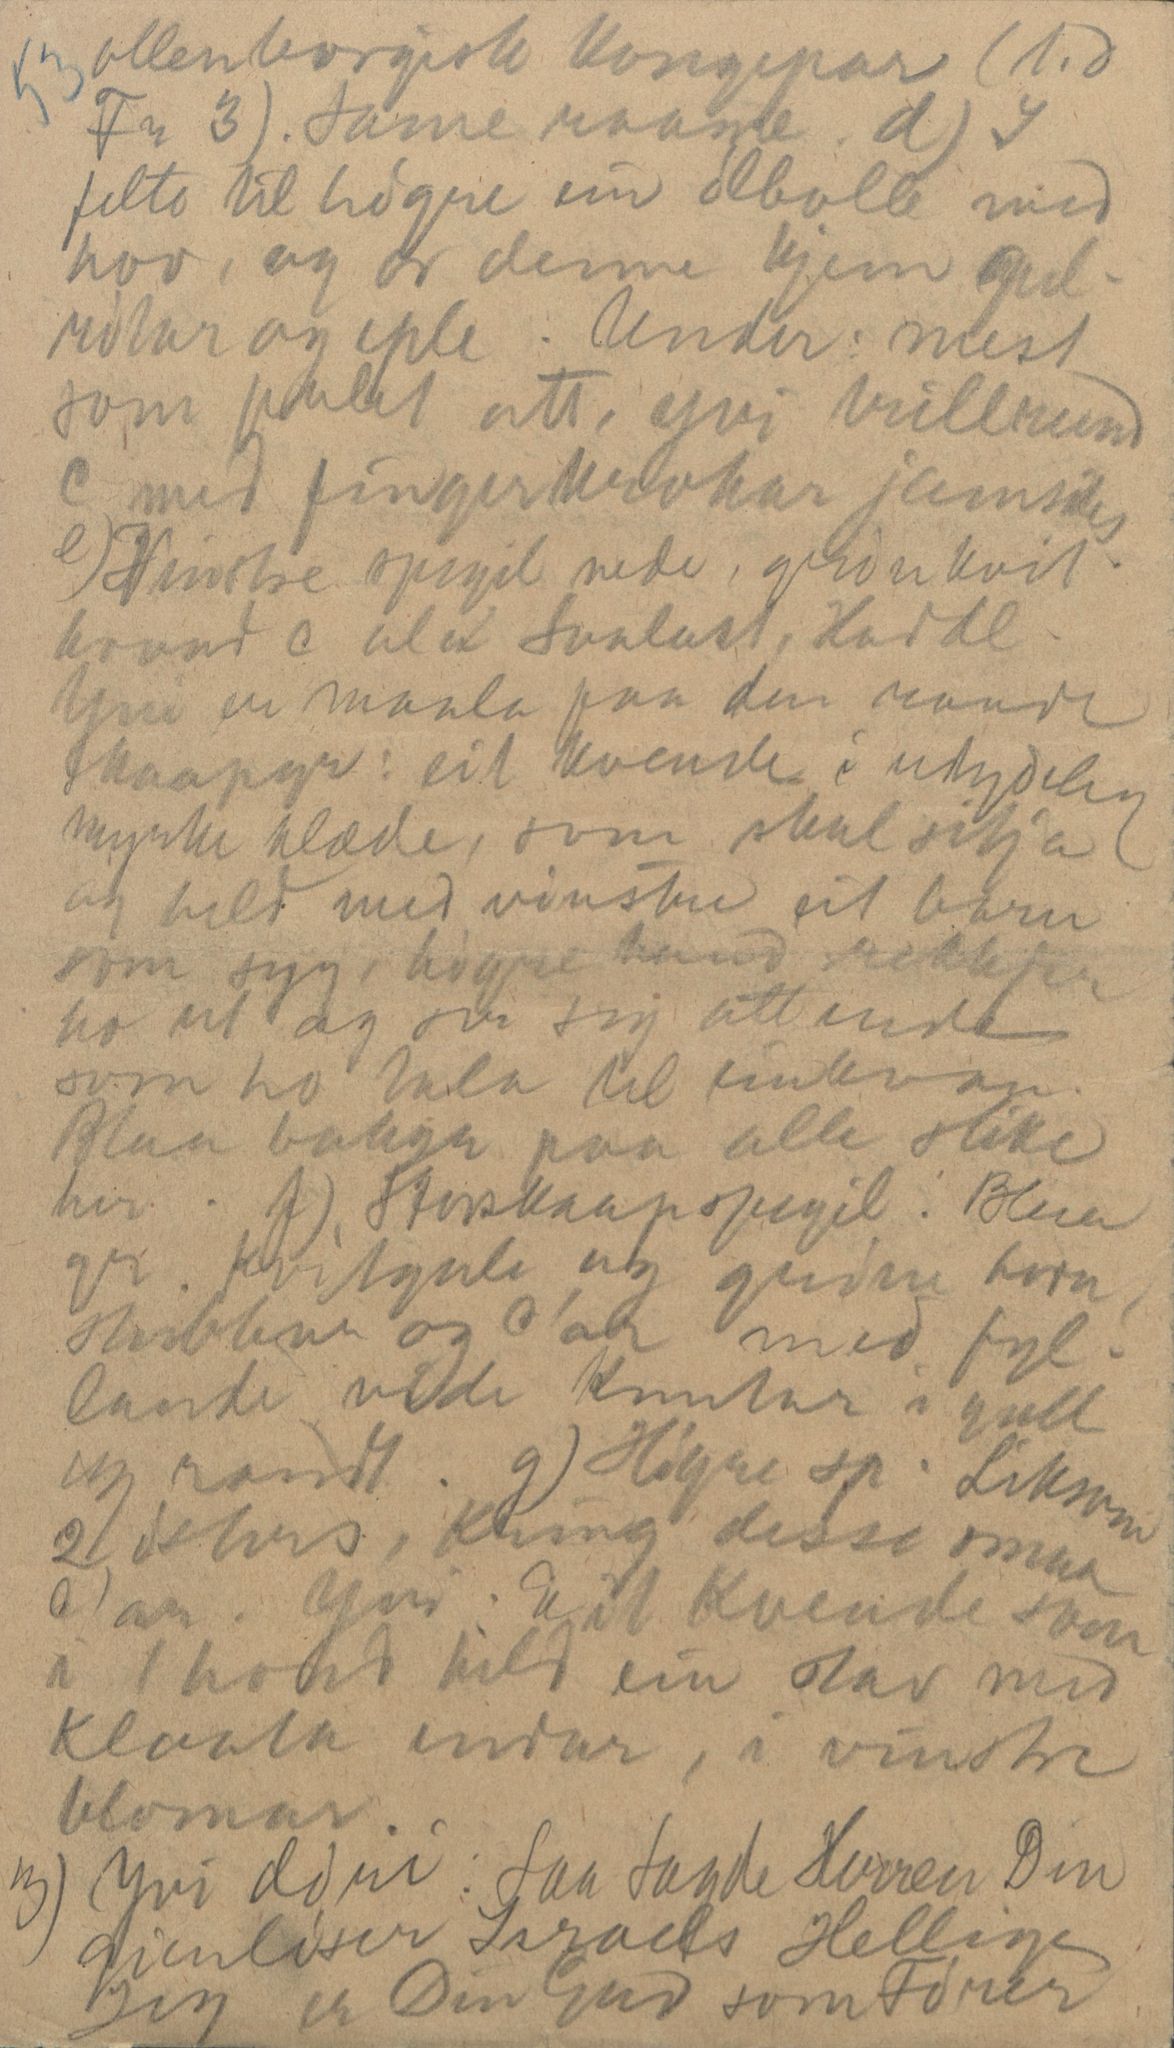 ollenborgisk kongepar (t.d
Fr 3). Same raame. d) I
felte til högre ein ölbolle med
hov, og or denne kjem gul-
rötar og eple. Under: mest
som paalet att, yvi krillrund
C med fingerkrokar jamsides
e) Vinstre spegil nede, grönkvit
krand C ala Svalast, Haddl.
Yvi er maala paa den raude
skaapgr: eit kvende i utydeleg
myrke klæde, som skal sitja
og held med vinstre eit barn
som syg, högre hand rekkjer
ho ut og ser seg attende
som ho tala til einkvan.
Blaa bakgr paa alle slike
her. f) Storskaapspegil: Blaa
gr. Kvitgule og gröne horn,
stubbar og C'ar med fyl-
lande vide knutar i gull
og raudt. g) Högre sp. Liksom
2 isters, kring desse smaa
C'ar. Yvi: Eit kvende som
i 1 hond held ein stav med
kloata endar, i vinstre
blomar.
3) Yvi döri: Saa sagde Herren Din
gienlöser Israels Hellige
Jeg er Din Gud som Förer